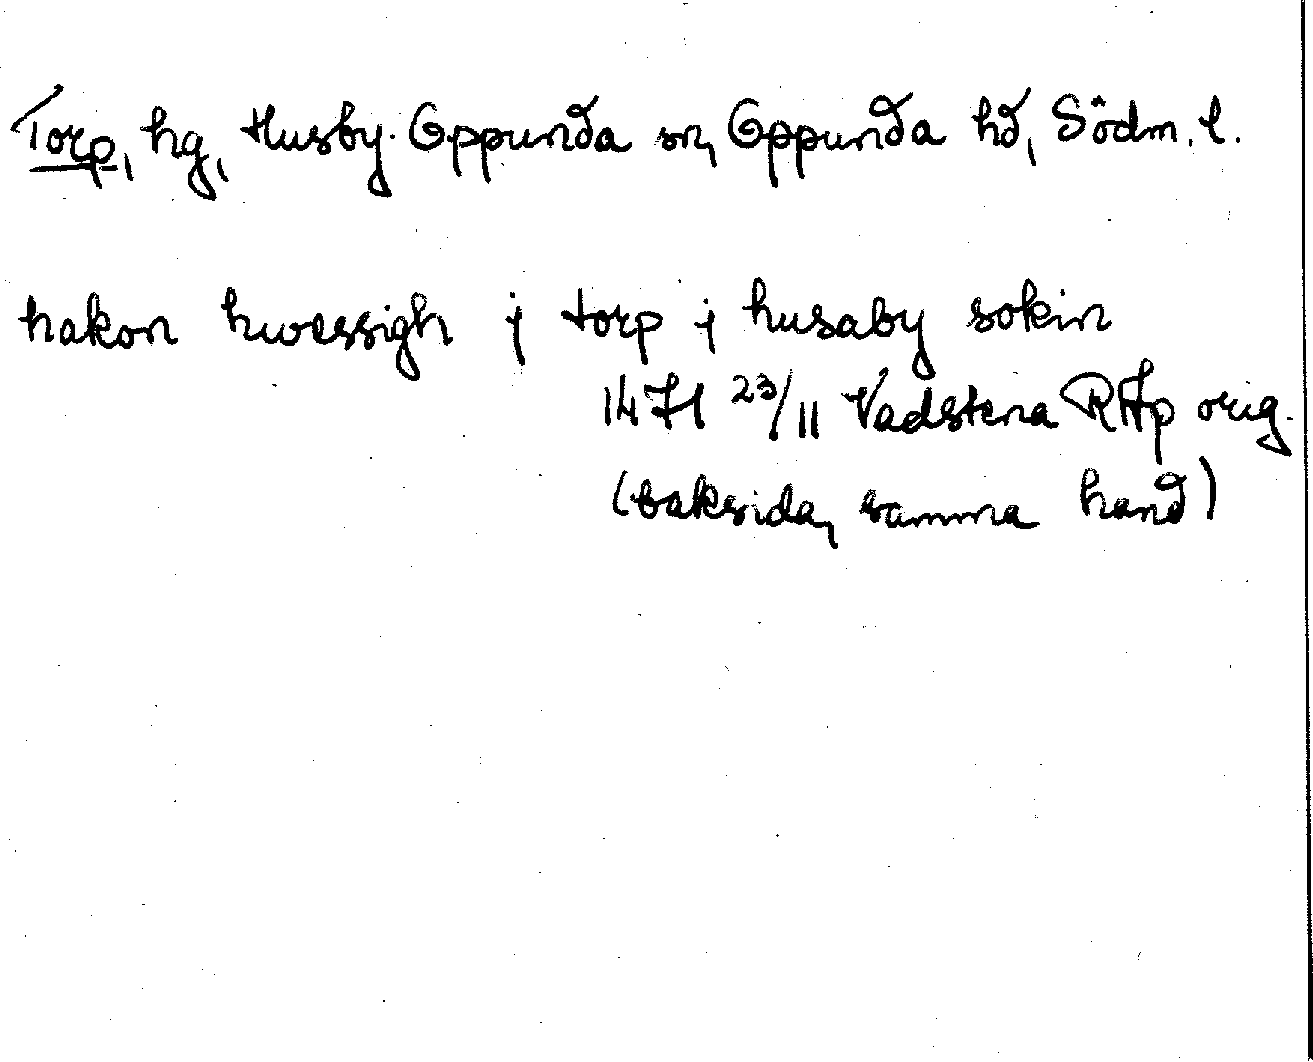 Torp, hg, Husby-Oppunda sn, Oppunda hd, Södm. l.
hakon hwessigh j torp j husaby sokin
1471 23/11 Vadstena RAp orig.
(baksida, samma hand)